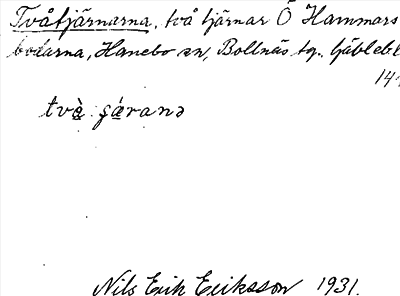 Tvåtjärnarna, två tjärnar Ö Hammars
bodarna, Hanebo sn, Bollnäs tg.
14
två̀ şǽranə
Nils Erik Eriksson 1931.